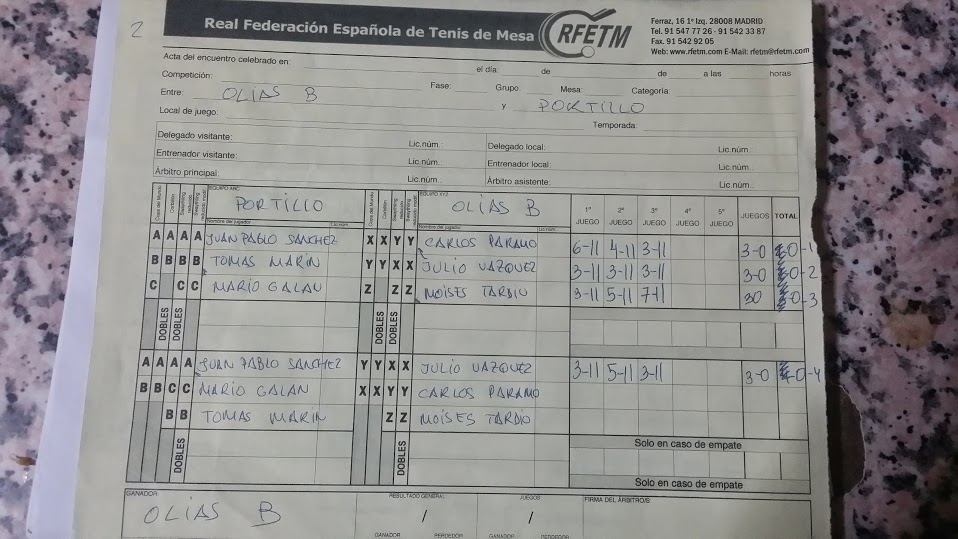 2
Real Federación Española de Tenis de Mesa RFETM
Ferraz, 16 1º Izq. 28008 MADRID
Tel. 91 547 77 26 - 91 542 33 87
Fax. 91 542 92 05
Web: www.rfetm.com E-Mail: rfetm@rfetm.com
Acta del encuentro celebrado en: el día: de de a las horas
Competición: Fase: Grupo Mesa: Categoría:
Entre: OLIAS B y PORTILLO
Local de juego: Temporada:
Delegado visitante: Lic.núm.: Delegado local: Lic.núm.
Entrenador visitante: Lic.núm. Entrenador local: Lic.núm.
Árbitro principal: Lic.núm. Árbitro asistente: Lic.núm.
EQUIPO ABC PORTILLO EQUIPO XYZ OLIAS B 1º JUEGO 2º JUEGO 3º JUEGO 4º JUEGO 5º JUEGO JUEGOS TOTAL
Nombre del jugador Lic.núm. Nombre del jugador Lic.núm.
A A A A JUAN PABLO SANCHEZ X X Y Y CARLOS PARAMO 6-11 4-11 3-11 3-0 0-1
B B B B TOMAS MARIN Y Y X X JULIO VAZQUEZ 3-11 3-11 3-11 3-0 0-2
C C C MARIO GALAN Z Z Z MOISES TARDIO 3-11 5-11 7-11 30 0-3
DOBLES DOBLES DOBLES DOBLES
A A A A JUAN PABLO SANCHEZ Y Y X X JULIO VAZQUEZ 3-11 5-11 3-11 3-0 0-4
B B C C MARIO GALAN X X Y Y CARLOS PARAMO
B B TOMAS MARIN Z Z MOISES TARDIO
Solo en caso de empate
DOBLES DOBLES
Solo en caso de empate
GANADOR RESULTADO GENERAL JUEGOS FIRMA DEL ÁRBITRO/S
OLIAS B / /
GANADOR PERDEDOR GANADOR PERDEDOR